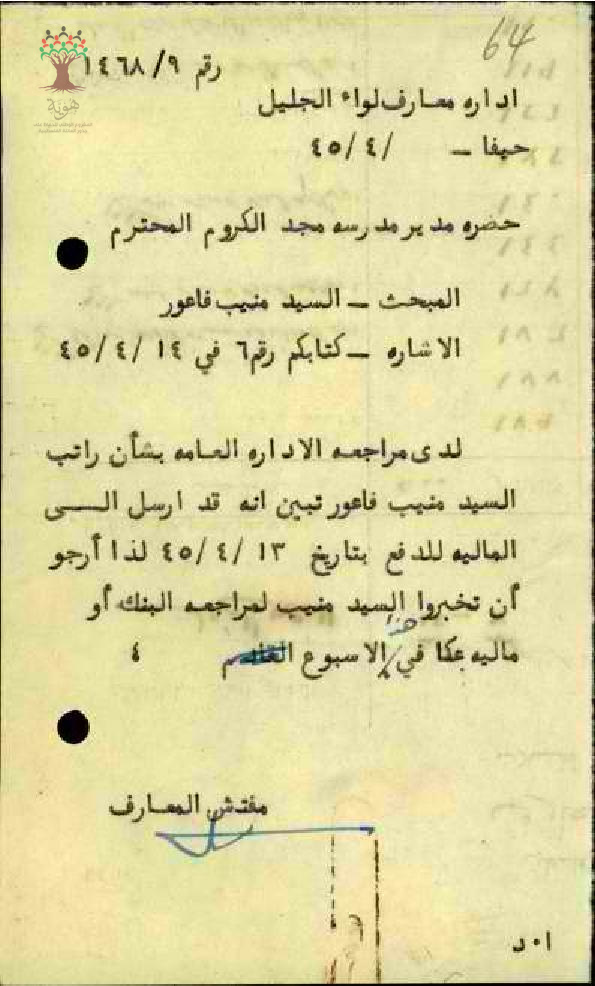 64
رقم ١٤٦٨/٩
هوية
اداره معارف لواء الجليل
حيفا – /٤٥/٤
حضره مدير مدرسه مجد الكروم المحترم
المبحث – السيد منيب فاعور
الاشاره – كتابكم رقم ٦ في ١٤ /٤٥/٤
لدى مراجعه الاداره العامه بشأن راتب
السيد منيب فاعور تبين انه قد ارسل الـــى
الماليه للدفع بتاريخ ١٣ /٤٥/٤ لذا أرجو
أن تخبروا السيد منيب لمراجعه البنك أو
هذا
ماليه عكا في الاسبوع القادم ٤
مفتش المعارف
ا٠د